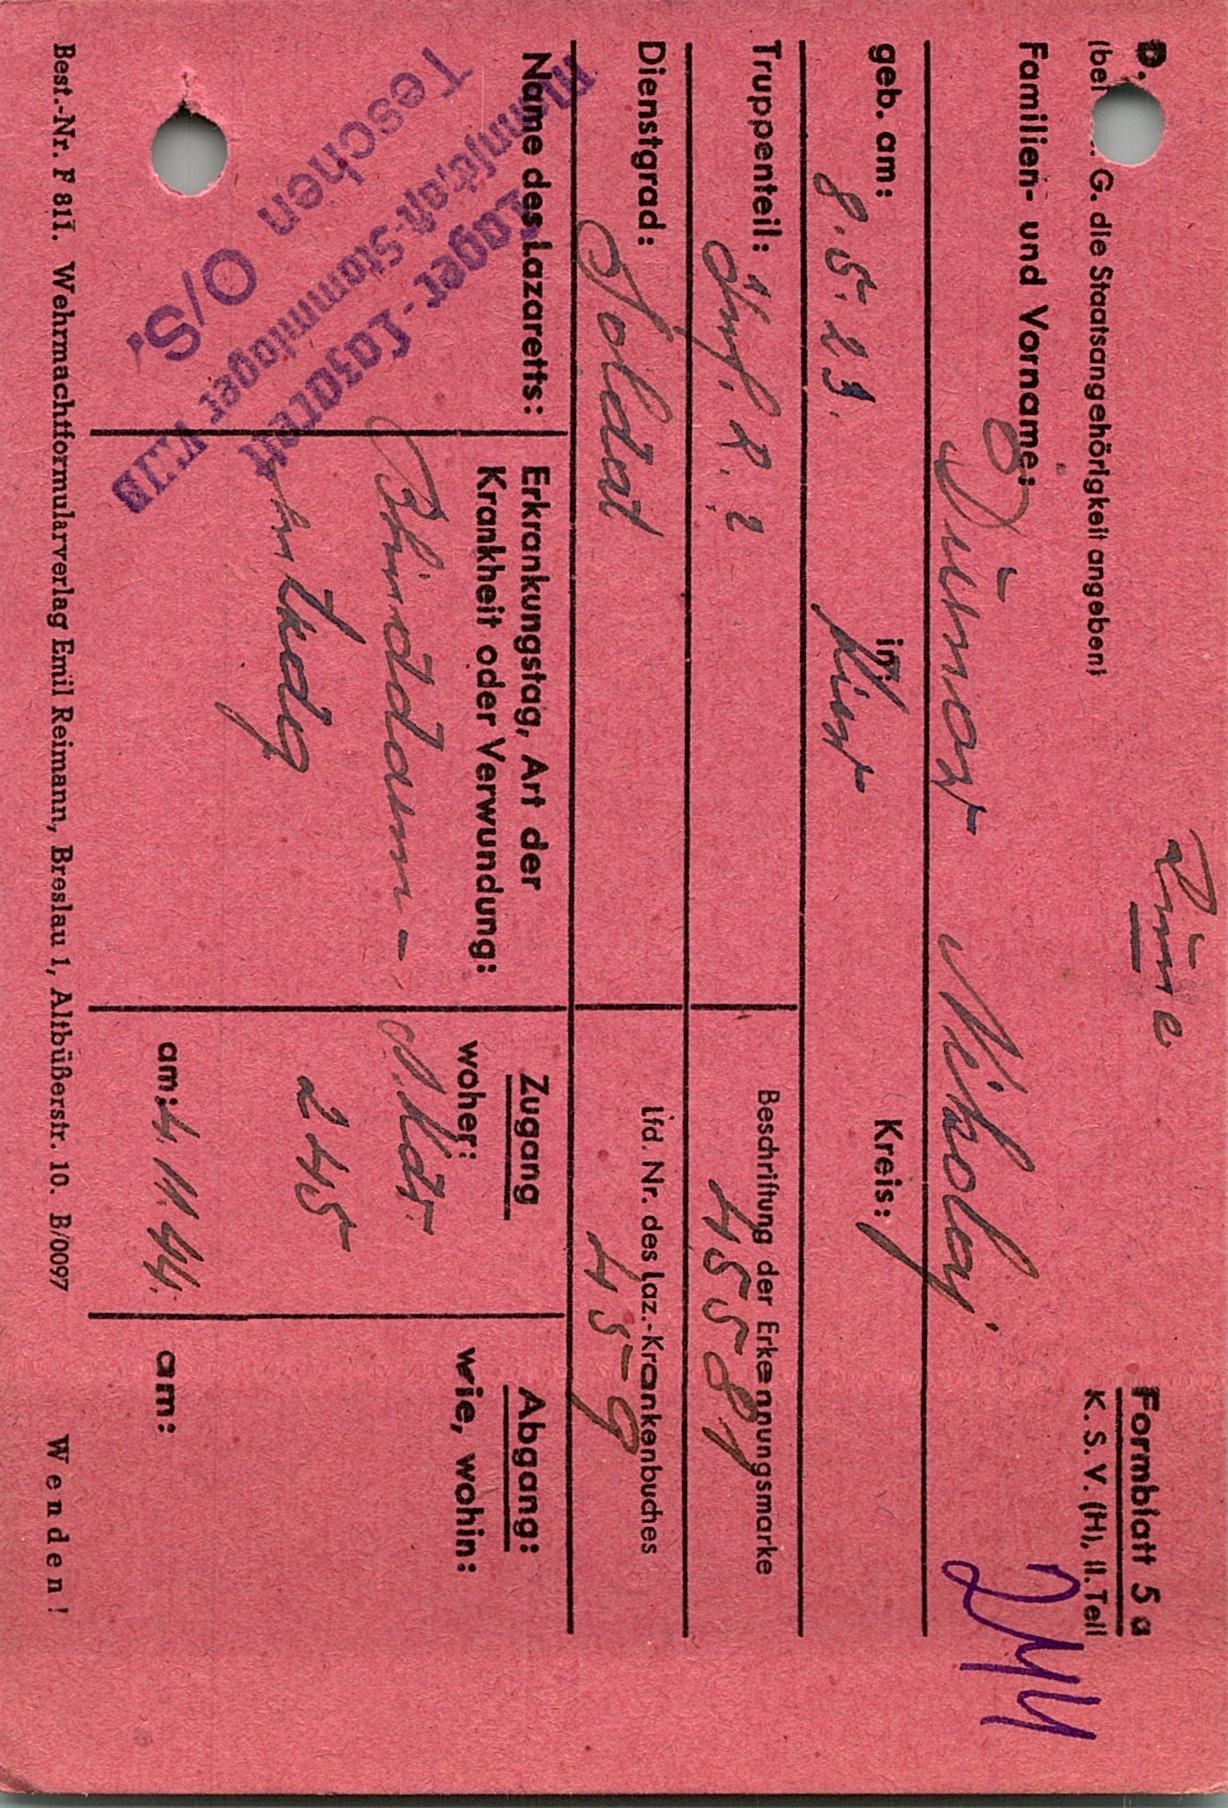 Formblatt 5 a
K. S. V. (H), II. Teil
D.
(bei G. die Staatsangehörigkeit angeben)
Familien- und Vorname: Nikolaj
244
geb. am: 8.5.23. in: Kreis:
Truppenteil: Inf. R. ?
Beschriftung der Erkennungsmarke
45581
Dienstgrad: Soldat
Lfd. Nr. des Laz.-Krankenbuches
45-9
Name des Lazaretts:
Lager-Lazarett
Mannschaft-Stammlager VIIIB
Teschen O/S.
Erkrankungstag, Art der
Krankheit oder Verwundung:
Blinddarm-
entzdg
Zugang
woher: A. Kdo.
245
am: 4. 11. 44.
Abgang:
wie, wohin:
am:
Best.-Nr. F 811. Wehrmachtformularverlag Emil Reimann, Breslau 1, Altbüßerstr. 10. B/0097
Wenden!